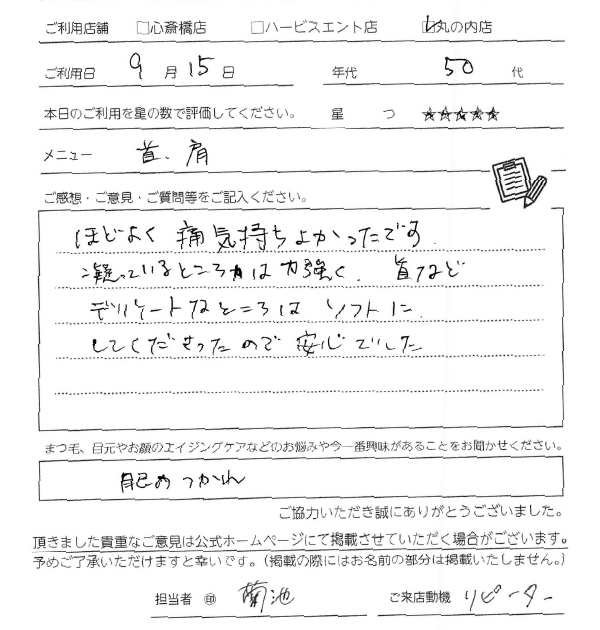 ご利用店舗 □心斎橋店 □ハービスエント店 ☑丸の内店
ご利用日 9月15日 年代 50代
本日のご利用を星の数で評価してください。 星 つ ★★★★★
メニュー 首、肩
ご感想・ご意見・ご質問等をご記入ください。
ほどよく痛気持ちよかったです.
凝っているところは力強く、首など
デリケートなところはソフトに
してくださったので安心でした
まつ毛、目元やお顔のエイジングケアなどのお悩みや今一番興味があることをお聞かせください。
目のつかれ
ご協力いただき誠にありがとうございました。
頂きました貴重なご意見は公式ホームページにて掲載させていただく場合がございます。
予めご了承いただけますと幸いです。(掲載の際にはお名前の部分は掲載いたしません。)
担当者 ㊞ 菊池 ご来店動機 リピーター